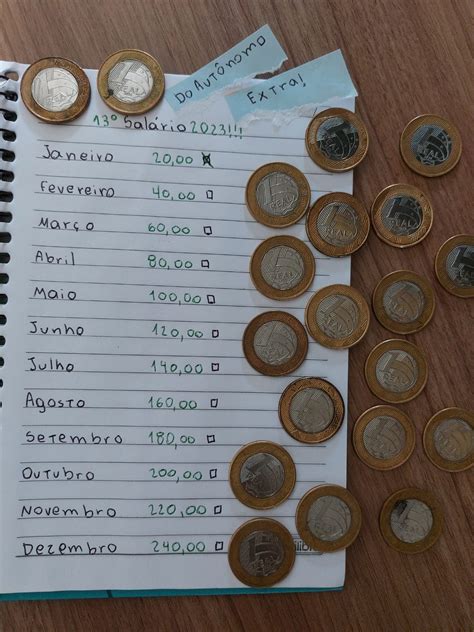 Do Autônomo
Extra!
13º Salário 2023!!!
Janeiro 20,00
Fevereiro 40,00
Março 60,00
Abril 80,00
Maio 100,00
Junho 120,00
Julho 140,00
Agosto 160,00
Setembro 180,00
Outubro 200,00
Novembro 220,00
Dezembro 240,00
REAL
REAL
REAL
REAL
REAL